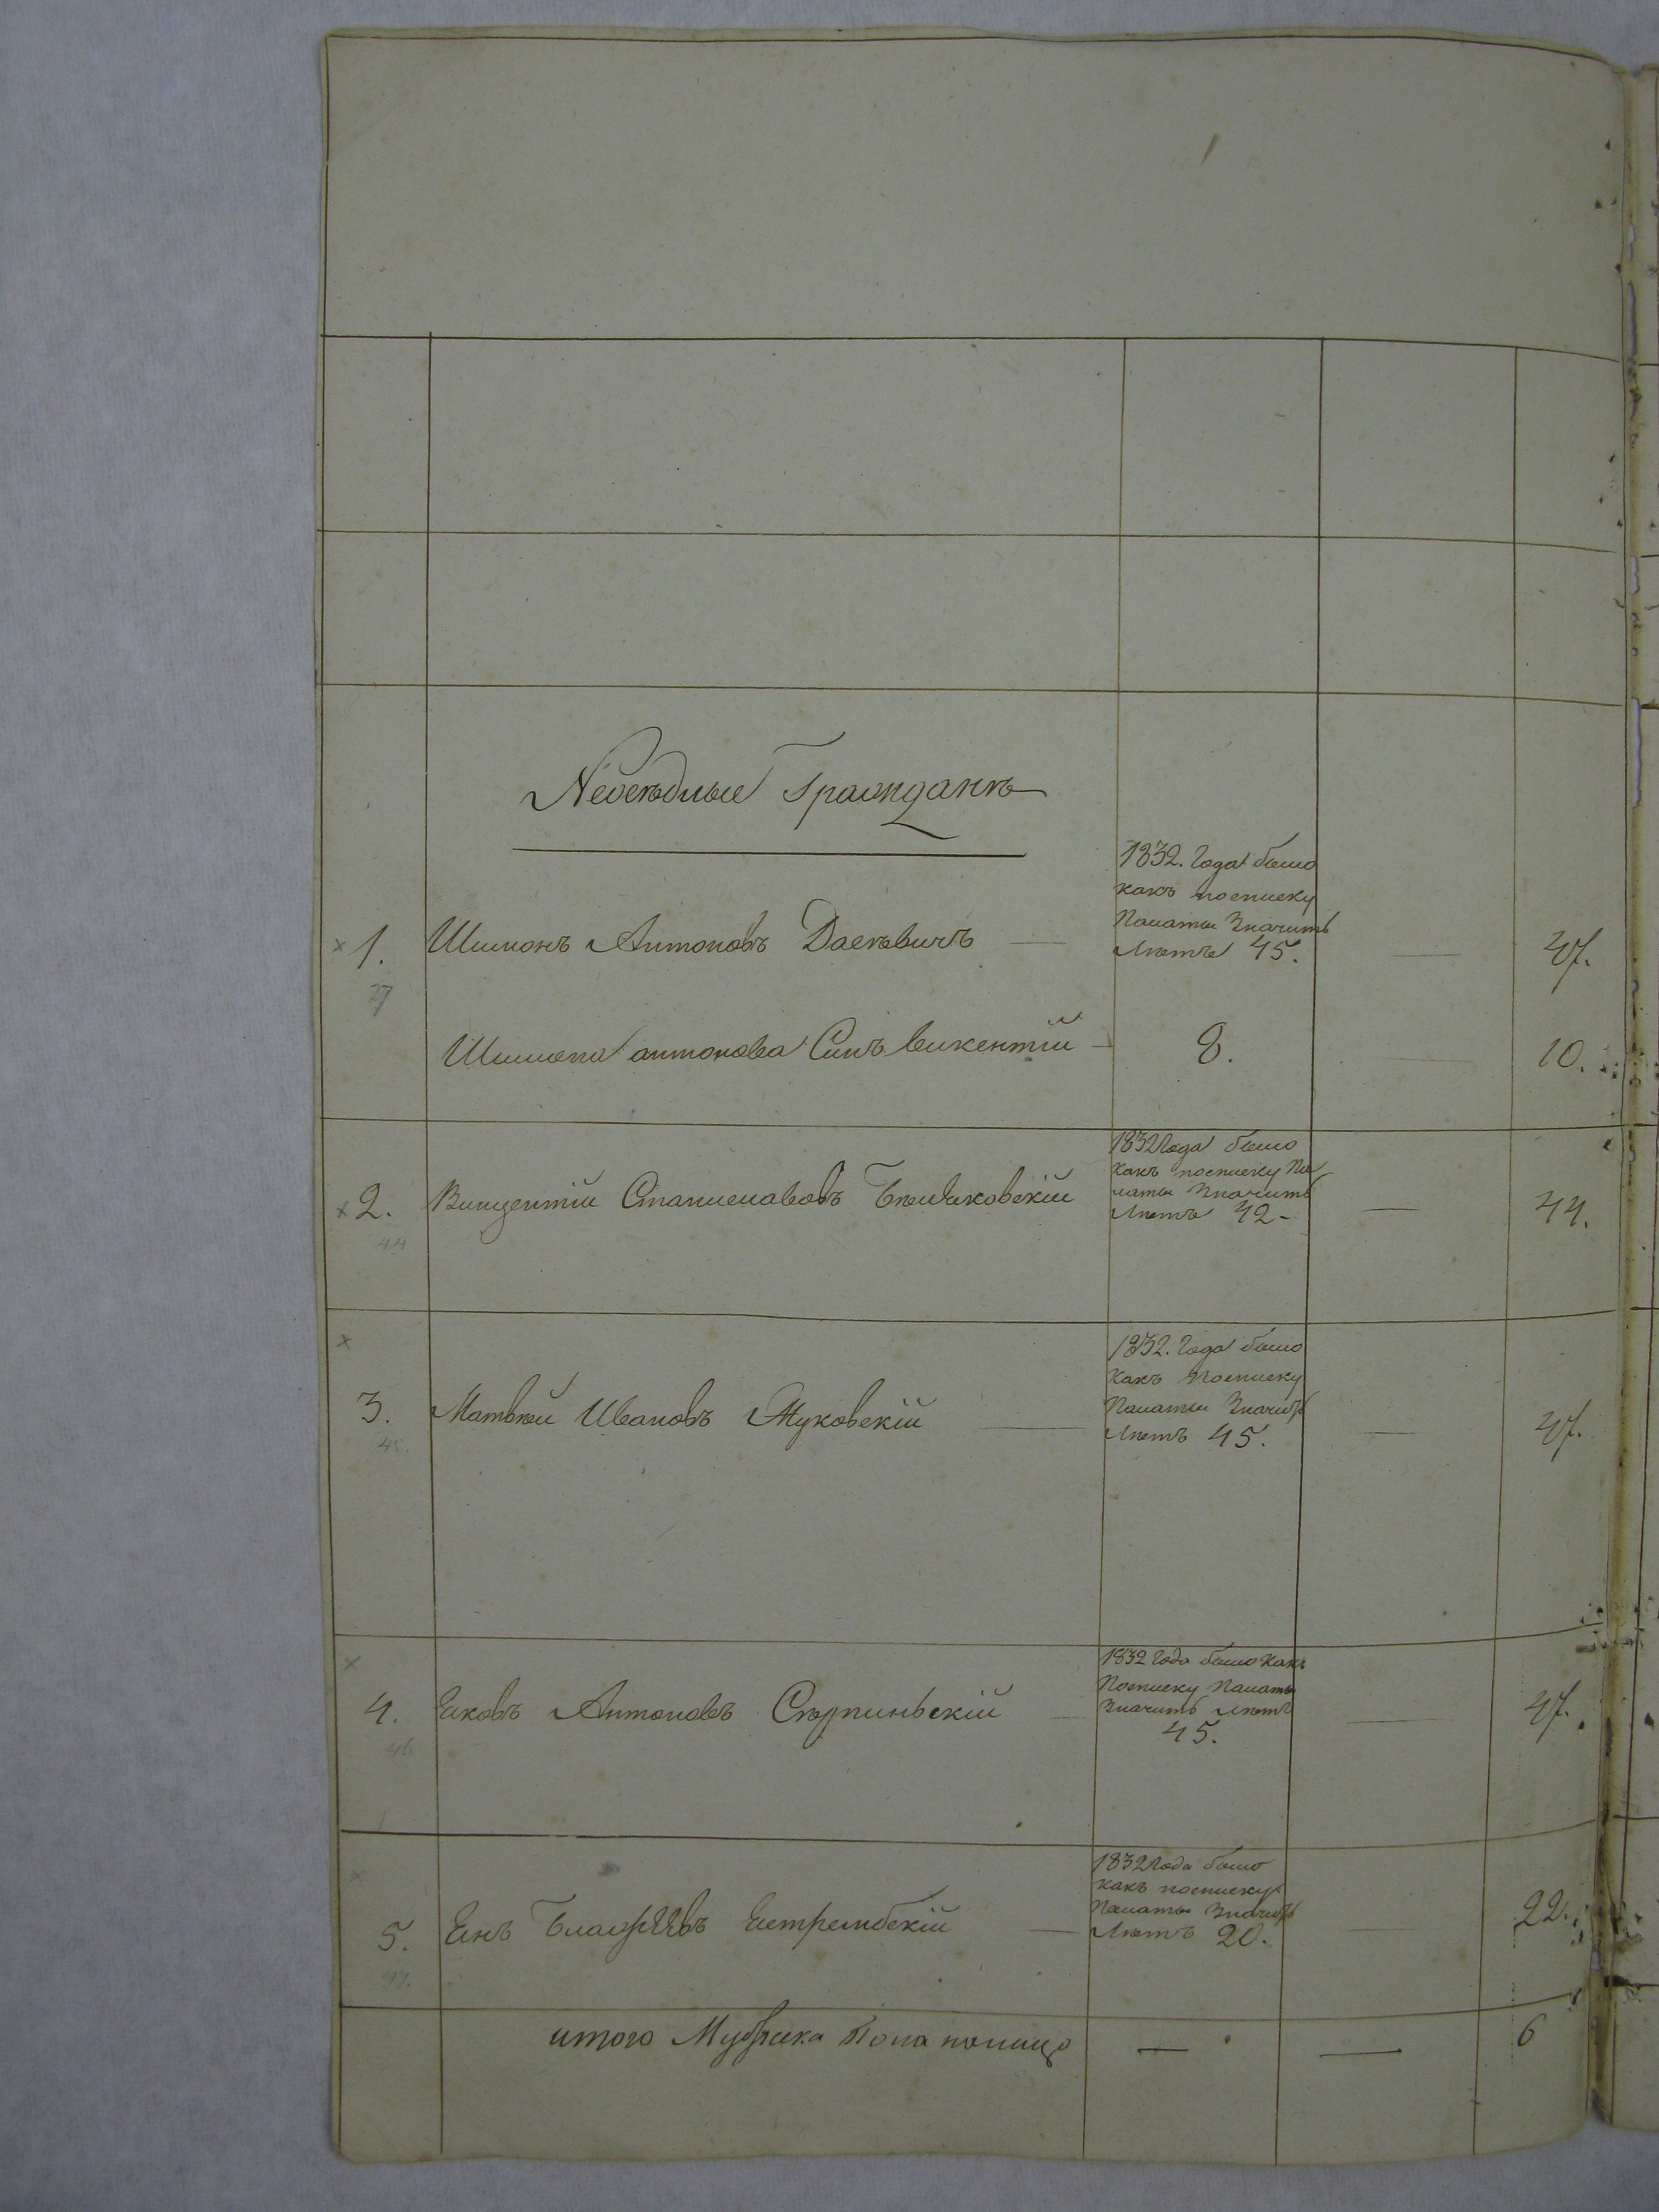 Неосѣдные Гражданѣ
1832. Года было
какъ посписку
Палаты Значитъ
× 1. Шимонъ Антоновъ Даен‌ѣвичъ — Лѣтъ 45. — 47.
27
Шимона антонова Сынъ викентій — 8. — 10.
1832 Года было
какъ посписку Па
латы Значитъ
× 2. Винцентій Станиславовъ Лѣтъ 42 - — 44.
44
×
1832. Года было
какъ Посписку
Палаты Значитъ
3. Матвѣй Ивановъ Жуковскій — Лѣтъ 45. — 47.
45.
×
1832 Года было какъ
Посписку Палаты
4. Еяковъ Антоновъ — Значитъ Лѣтъ — 47.
46 45.
1832 Года было
какъ посписку
Палаты Значитъ
5. Енъ Естрембскій — Лѣтъ 20. — 22.
47.
итого Мужеска Пола налицо — — 6